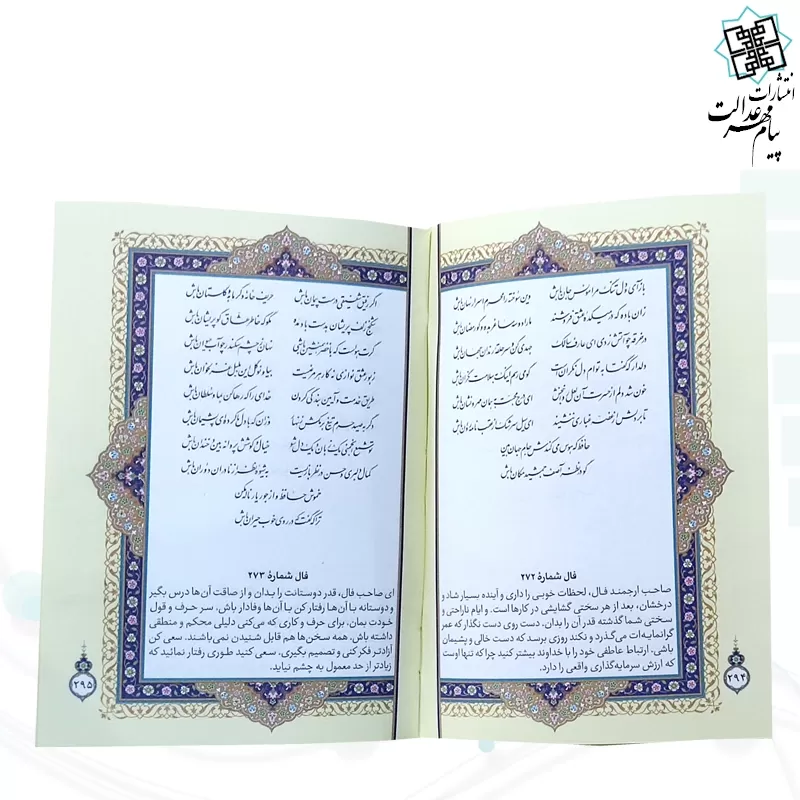 انتشارات
پیام مهر عدالت
بازآی و دل تنگ مرا مونس جان باش وین سوخته را محرم اسرار نهان باش
زان باده که در میکده عشق فروشند ما را دو سه ساغر بده و گو رمضان باش
در خرقه چو آتش زدی ای عارف سالک جهدی کن و سرحلقه رندان جهان باش
دلدار که گفتا به توام دل نگران است گو می‌رسم اینک به سلامت نگران باش
خون شد دلم از حسرت آن لعل روانبخش ای درج محبت به همان مهر و نشان باش
تا بر دلش از غصه غباری ننشیند ای سیل سرشک از عقب نامه روان باش
حافظ که هوس می‌کندش جام جهان بین
گو در نظر آصف جمشید مکان باش
فال شمارهٔ ۲۷۲
صاحب ارجمند فال، لحظات خوبی را داری و آینده بسیار شاد و
درخشان، بعد از هر سختی گشایشی در کارها است. و ایام ناراحتی و
سختی شما گذشته قدر آن را بدان. دست روی دست نگذار که عمر
گرانمایه‌ات می‌گذرد و نکند روزی برسد که دست خالی و پشیمان
باشی. ارتباط عاطفی خود را با خداوند بیشتر کنید چرا که تنها اوست
که ارزش سرمایه‌گذاری واقعی را دارد.
۲۹۴
اگر رفیق شفیقی درست پیمان باش حریف خانه و گرمابه و گلستان باش
شکنج زلف پریشان به دست باد مده مگو که خاطر عشاق گو پریشان باش
گرت هواست که با خضر همنشین باشی نهان ز چشم سکندر چو آب حیوان باش
زبور عشق نوازی نه کار هر مرغیست بیا و نوگل این بلبل غزلخوان باش
طریق خدمت و آیین بندگی کردن خدای را که رها کن به ما و سلطان باش
دگر به صید حرم تیغ برمکش زنهار وزان که با دل ما کرده‌ای پشیمان باش
تو شمع انجمنی یک زبان و یک دل شو خیال و کوشش پروانه بین و خندان باش
کمال دلبری و حسن در نظربازیست به شیوه نظر از نادران دوران باش
خموش حافظ و از جور یار ناله مکن
ترا که گفت که در روی خوب حیران باش
فال شمارهٔ ۲۷۳
ای صاحب فال، قدر دوستانت را بدان و از صاقت آن‌ها درس بگیر
و دوستانه با آن‌ها رفتار کن با آن‌ها وفادار باش. سر حرف و قول
خودت بمان، برای حرف و کاری که می‌کنی دلیلی محکم و منطقی
داشته باش. همه سخن‌ها هم قابل شنیدن نمی‌باشند. سعی کن
آزادتر فکر کنی و تصمیم بگیری. سعی کنید طوری رفتار نمائید که
زیادتر از حد معمول به چشم نیاید.
۲۹۵